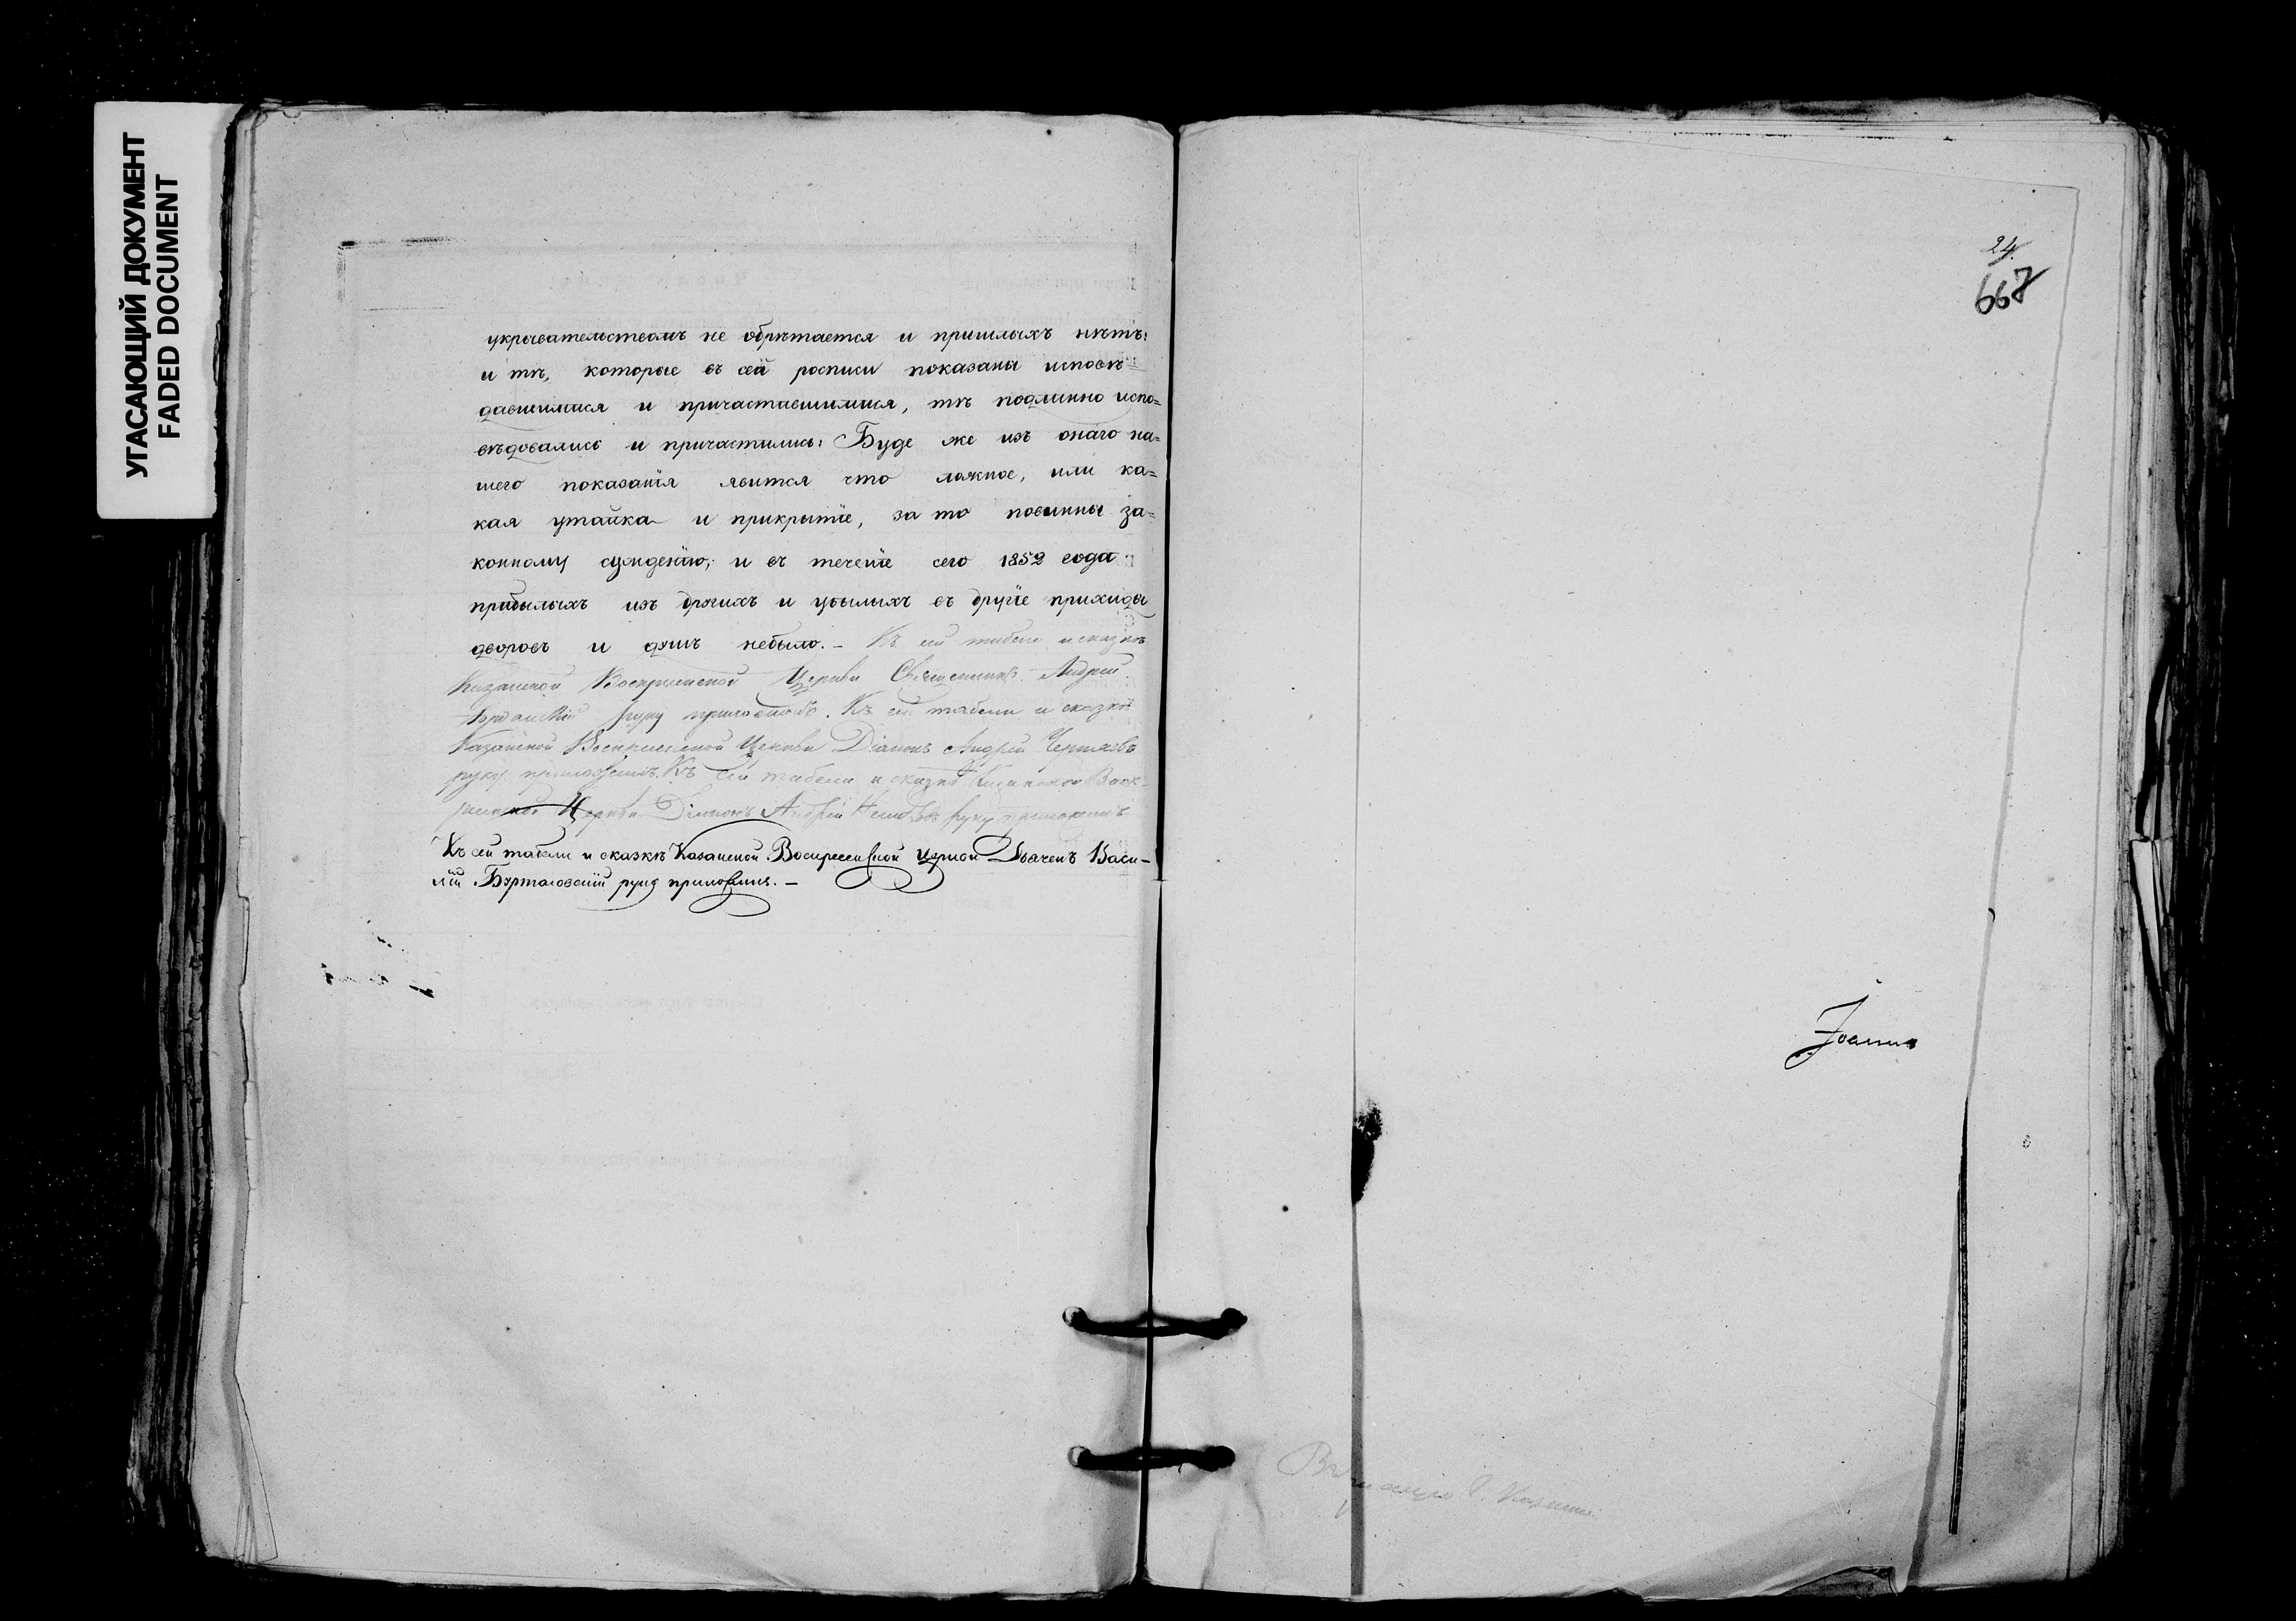 УГАСАЮЩИЙ ДОКУМЕНТ
FADED DOCUMENT
укрывательствомъ не обрѣтается и пришлыхъ нѣтъ:
и тѣ, которые въ сей росписи показаны исповѣ=
давшимися и причаставшимися, тѣ подлинно испо=
вѣдовались и причастились: Буде же изъ онаго на=
шего показанія явится что ложное, или ка=
кая утайка и прикрытіе, за то повинны за=
конному сужденію; и въ теченіе сего 1852 года
прибылыхъ изъ другихъ и убылыхъ въ другіе приходы
дворовъ и душъ небыло. - Къ сей табели и сказкѣ
Казанской Воскресенской Церкви Священникъ Андрей
руку приложилъ. Къ сей табели и сказкѣ
Казанской Воскресенской Церкви Діаконъ Андрей Черняевъ
руку приложилъ. Къ сей табели и сказкѣ Казанской Воск-
ресенской Церкви Діаконъ Андрей руку приложилъ
Къ сей табели и сказкѣ Казанской Воскресенской Церкви Дьячекъ Васи-
лій руку приложилъ. -
24.
667
Іоанна